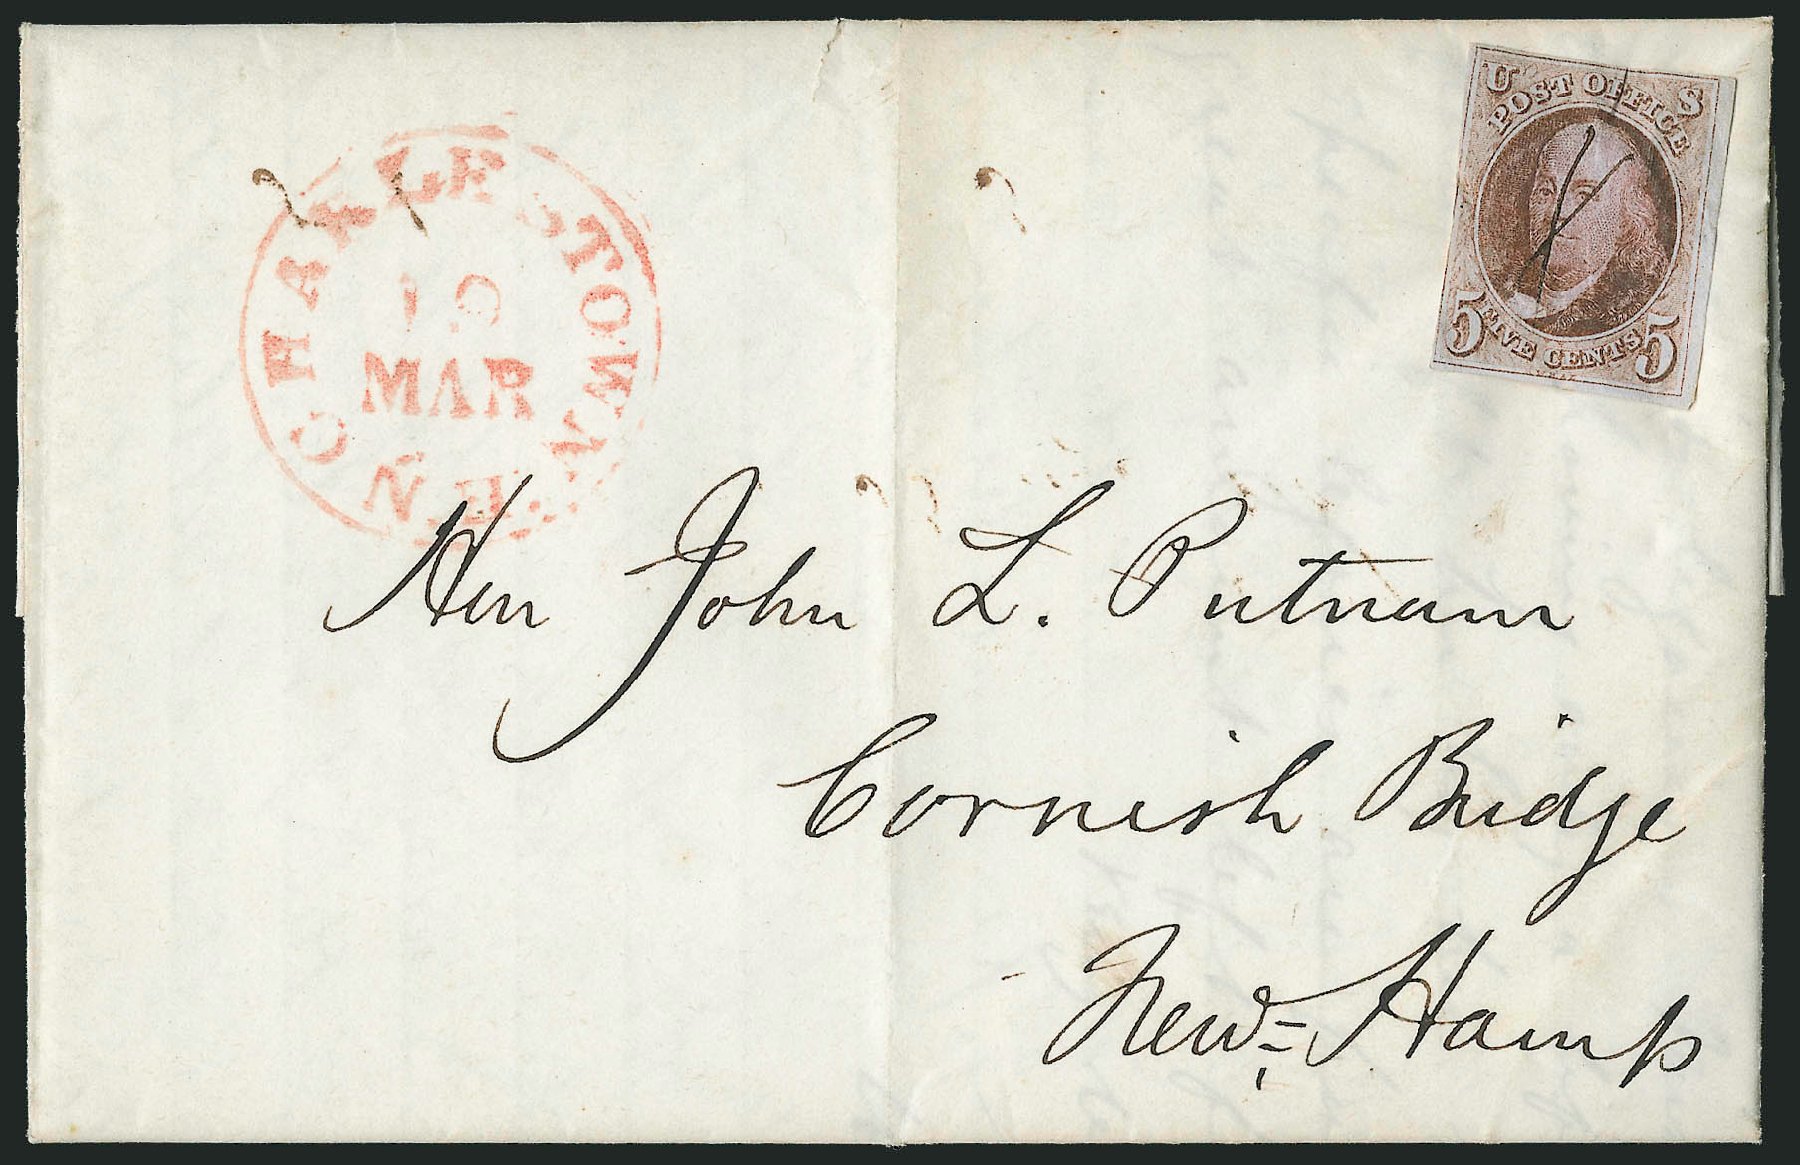 CHARLESTOWN
N.H.
MAR
U S
POST OFFICE
5 FIVE CENTS 5
Hon John L. Putnam
Cornish Bridge
New= Hamp